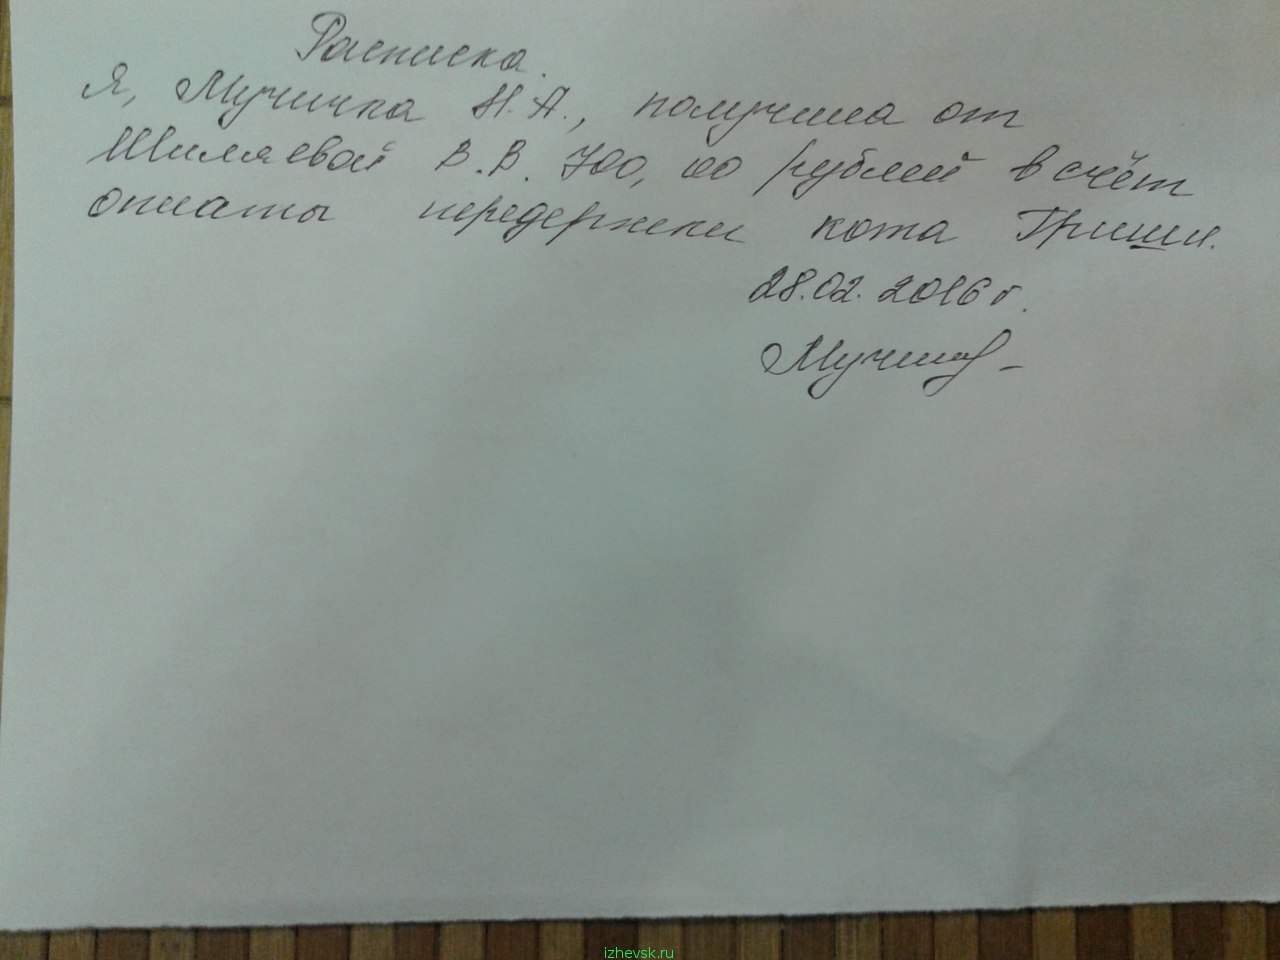 Расписка.
Я, Мучичка Н.А., получила от
Шиляевой В.В. 700,00 рублей в счёт
оплаты передержки кота Гриши.
28.02.2016 г.
izhevsk.ru